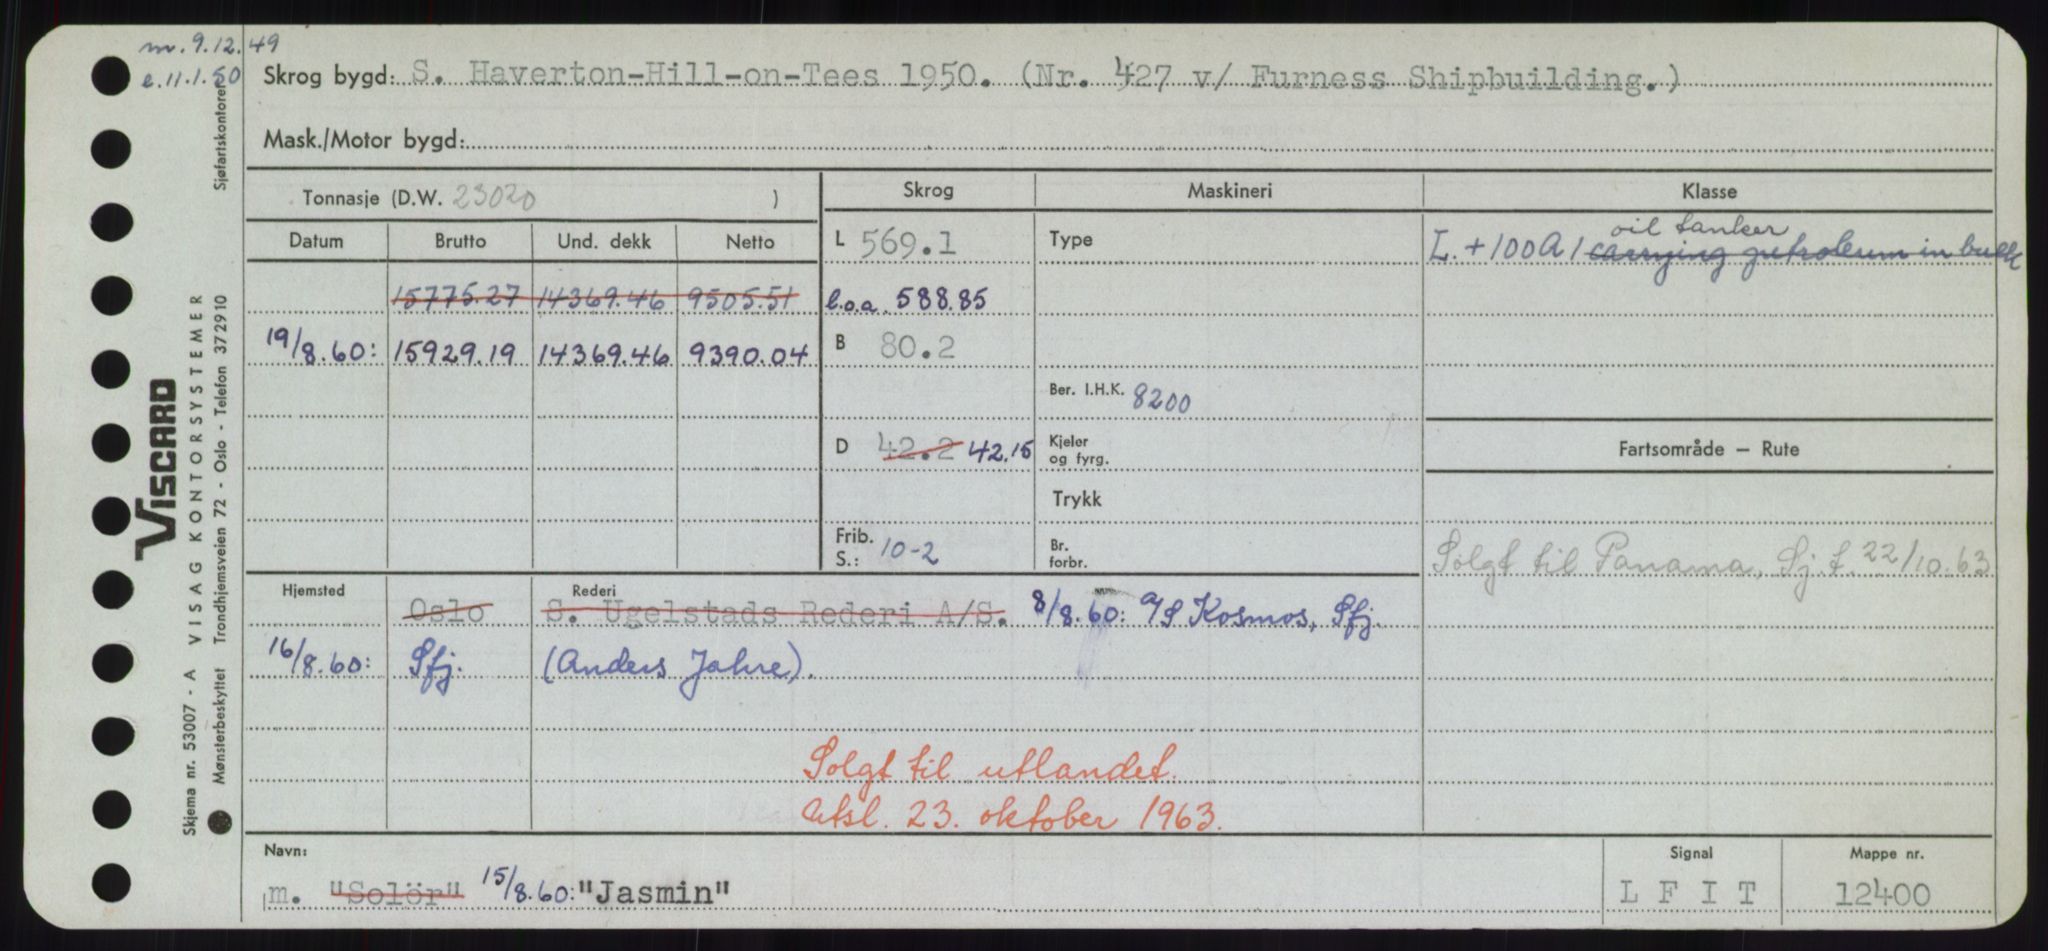 m. 9.12.49
e. 11.1.50
Skrog bygd: S. Haverton-Hill-on-Tees 1950. (Nr. 427 v/ Furness Shipbuilding.)
Mask./Motor bygd:
Tonnasje (D.W. 23020 )
Skrog Maskineri Klasse
Datum Brutto Und. dekk Netto
L 569.1
Type
oil tanker
L. + 100 A 1 carrying petroleum in bulk
15775.27 14369.46 9505.51
l.o.a. 588.85
19/8.60: 15929.19 14369.46 9390.04
B 80.2
Ber. I.H.K. 8200
D 42.2 42.15
Kjeler
og fyrg.
Fartsområde – Rute
Trykk
Frib.
S.: 10-2
Br.
forbr.
Solgt til Panama, Sj. t. 22/10.63
Hjemsted Rederi
Oslo S. Ugelstads Rederi A/S. 8/8.60: A/S Kosmos, Sfj.
16/8.60: Sfj. (Anders Jahre).
Solgt til utlandet.
Utsl. 23. oktober 1963.
Navn: Signal Mappe nr.
m. "Solör" 15/8.60: "Jasmin" L F I T 12400
VISCARD
Skjema nr. 53007 - A VISAG KONTORSYSTEMER
Mønsterbeskyttet Trondhjemsveien 72 - Oslo - Telefon 372910
Sjøfartskontoret